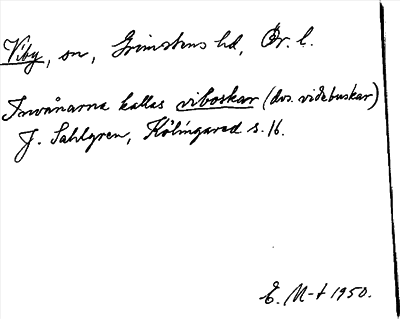 Viby, sn, Grimstens hd, Ör. l.
Invånarna kallas viboskar (dvs. videbuskar)
J. Sahlgren, Kölingared s. 16.
E. M-t 1950.